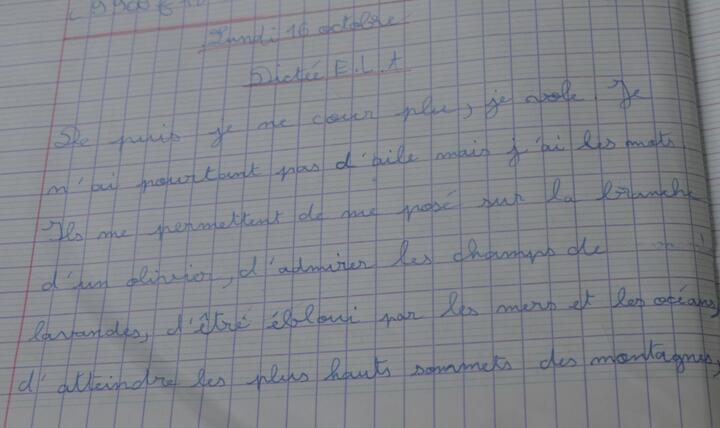 Lundi 16 octobre
Dictée E.L.A
De puis je ne cour plu, je vole. Je
n'ai pourtant pas d'aile mais j'ai les mots
Ils me permettent de me posé sur la branche
d'un olivior, d'admirer les champs de
lavandes, d'êtré ébloui par les mers et les océans,
d'atteindre les plus hauts sommets des montagnes,